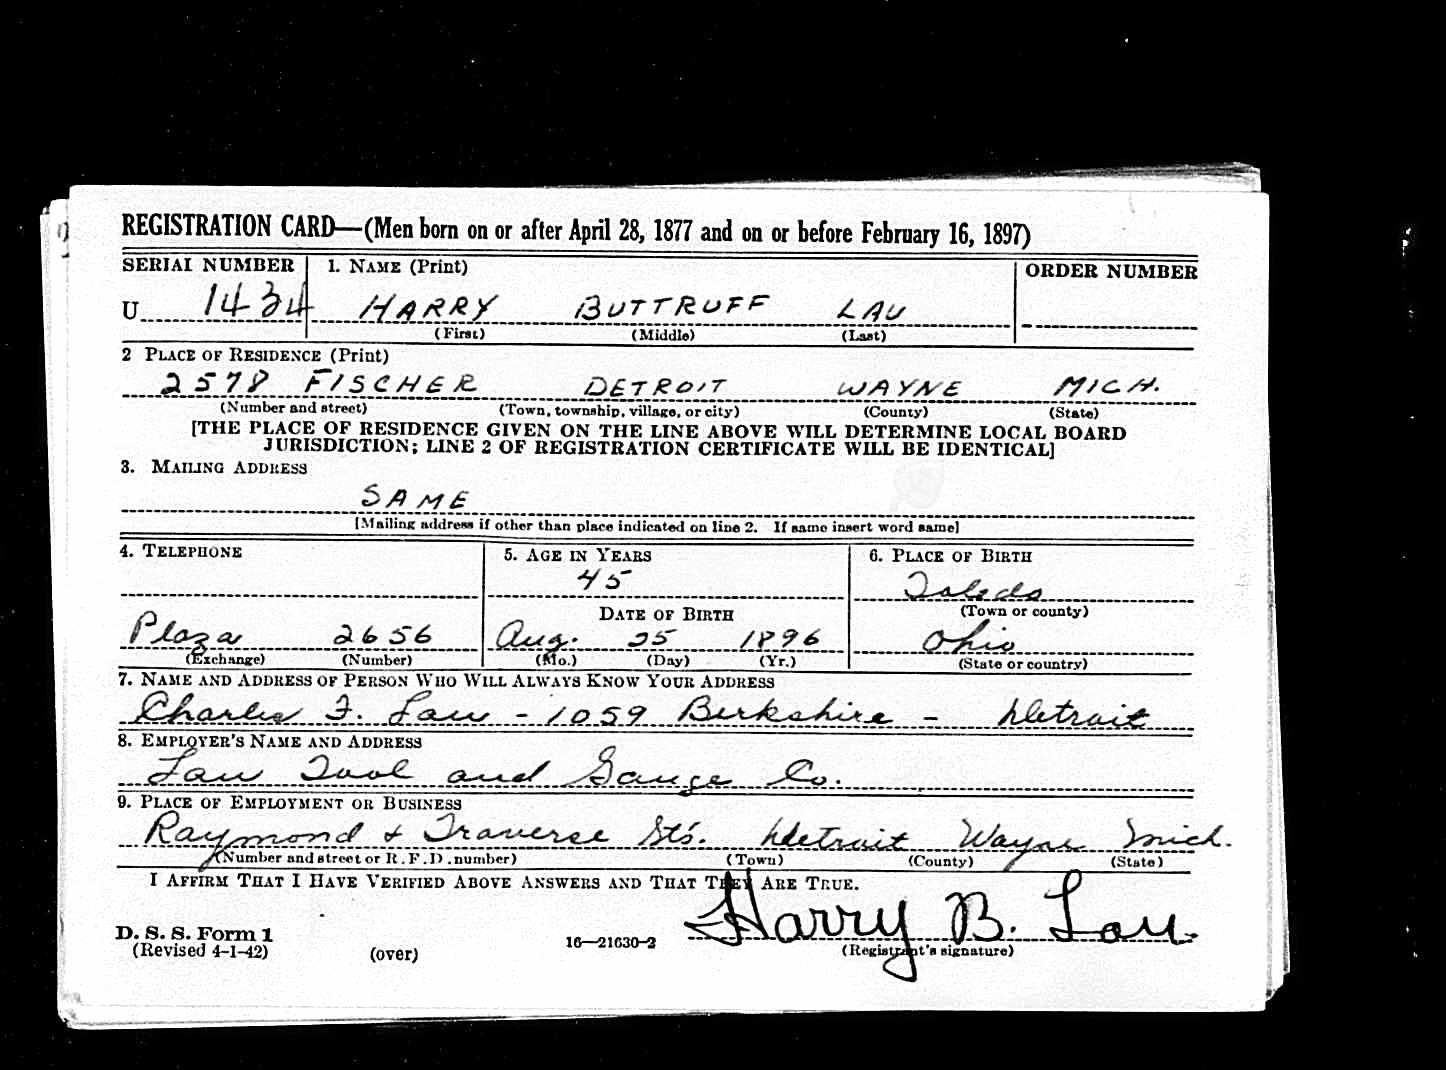 REGISTRATION CARD—(Men born on or after April 28, 1877 and on or before February 16, 1897)
SERIAL NUMBER 1. NAME (Print) ORDER NUMBER
U 1434 HARRY BUTTRUFF LAU
(First) (Middle) (Last)
2 PLACE OF RESIDENCE (Print)
2578 FISCHER DETROIT WAYNE MICH.
(Number and street) (Town, township, village, or city) (County) (State)
[THE PLACE OF RESIDENCE GIVEN ON THE LINE ABOVE WILL DETERMINE LOCAL BOARD
JURISDICTION; LINE 2 OF REGISTRATION CERTIFICATE WILL BE IDENTICAL]
3. MAILING ADDRESS
SAME
[Mailing address if other than place indicated on line 2. If same insert word same]
4. TELEPHONE 5. AGE IN YEARS 6. PLACE OF BIRTH
45 Toledo
DATE OF BIRTH (Town or county)
Plaza 2656 Aug. 25 1896 Ohio
(Exchange) (Number) (Mo.) (Day) (Yr.) (State or country)
7. NAME AND ADDRESS OF PERSON WHO WILL ALWAYS KNOW YOUR ADDRESS
Charles F. Lau - 1059 Berkshire - Detroit
8. EMPLOYER'S NAME AND ADDRESS
Lau Tool and Gauge Co.
9. PLACE OF EMPLOYMENT OR BUSINESS
Raymond & Traverse Sts. Detroit Wayne Mich.
(Number and street or R.F.D. number) (Town) (County) (State)
I AFFIRM THAT I HAVE VERIFIED ABOVE ANSWERS AND THAT THEY ARE TRUE.
Harry B. Lau
D. S. S. Form 1
(Revised 4-1-42) (over) 16—21630-2 (Registrant's signature)